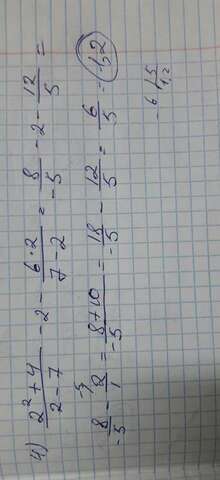 4) (2² + 4)/(2 - 7) - 2 - (6·2)/(7 - 2) = 8/(-5) - 2 - 12/5 =
8/(-5) - 2/1 = (8 + 10)/(-5) = 18/(-5) - 12/5 = 6/5 = 1,2
- 6 | 5
1,2